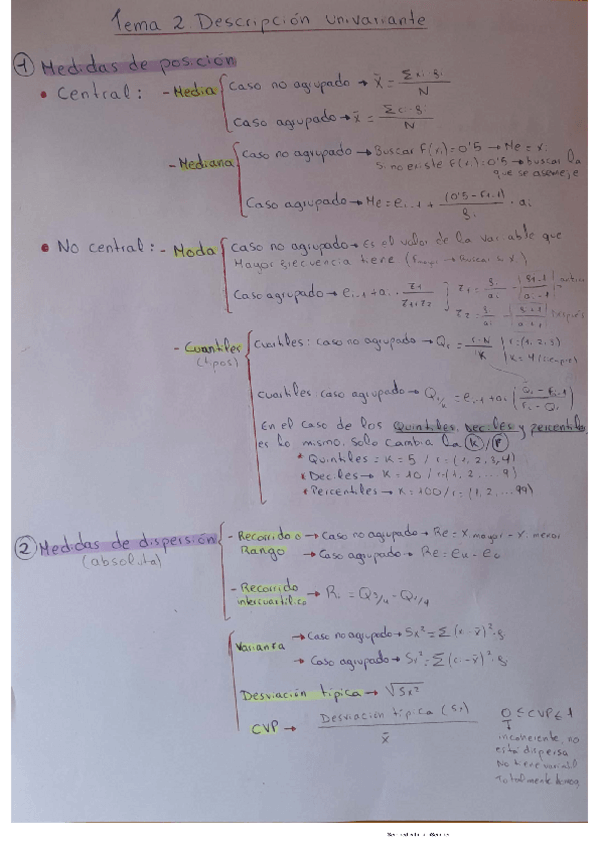 Tema 2. Descripción univariante
1 Medidas de posición
• Central: - Media
Caso no agrupado → x̄ = Σxi·fi / N
Caso agrupado → x̄ = Σci·fi / N
- Mediana
Caso no agrupado → Buscar F(xi)=0'5 → Me = xi
Si no existe F(xi)=0'5 → buscar la
que se asemeje
Caso agrupado → Me = ei-1 + (0'5 - Fi-1) / fi · ai
• No central: - Moda
Caso no agrupado → Es el valor de la variable que
Mayor frecuencia tiene
Caso agrupado → ei-1 + ai · r1 / r1+r2
- Cuantiles
(tipos)
Cuartiles: caso no agrupado → Qr = r·N / K
r=(1,2,3)
K=4
Cuartiles caso agrupado → Qr/k = ei-1 + ai
En el caso de los Quintiles, Deciles y percentiles
es lo mismo, solo cambia la K/r
• Quintiles = K = 5 / r=(1,2,3,4)
• Deciles → K = 10 / r=(1,2,...9)
• Percentiles → K = 100 / r=(1,2,...99)
2 Medidas de dispersión
(absoluta)
- Recorrido o Rango
→ Caso no agrupado → Re = x mayor - x menor
→ Caso agrupado → Re = ek - e0
- Recorrido
intercuartílico → Ri = Q3/4 - Q1/4
Varianza
→ Caso no agrupado → Sx² = Σ(xi - x̄)²·fi
→ Caso agrupado → Sx² = Σ(ci - x̄)²·fi
Desviación típica → √Sx²
CVP → Desviación típica (Sx) / x̄
0 ≤ CVP ≤ 1
incoherente, no
está dispersa
No tiene
Totalmente